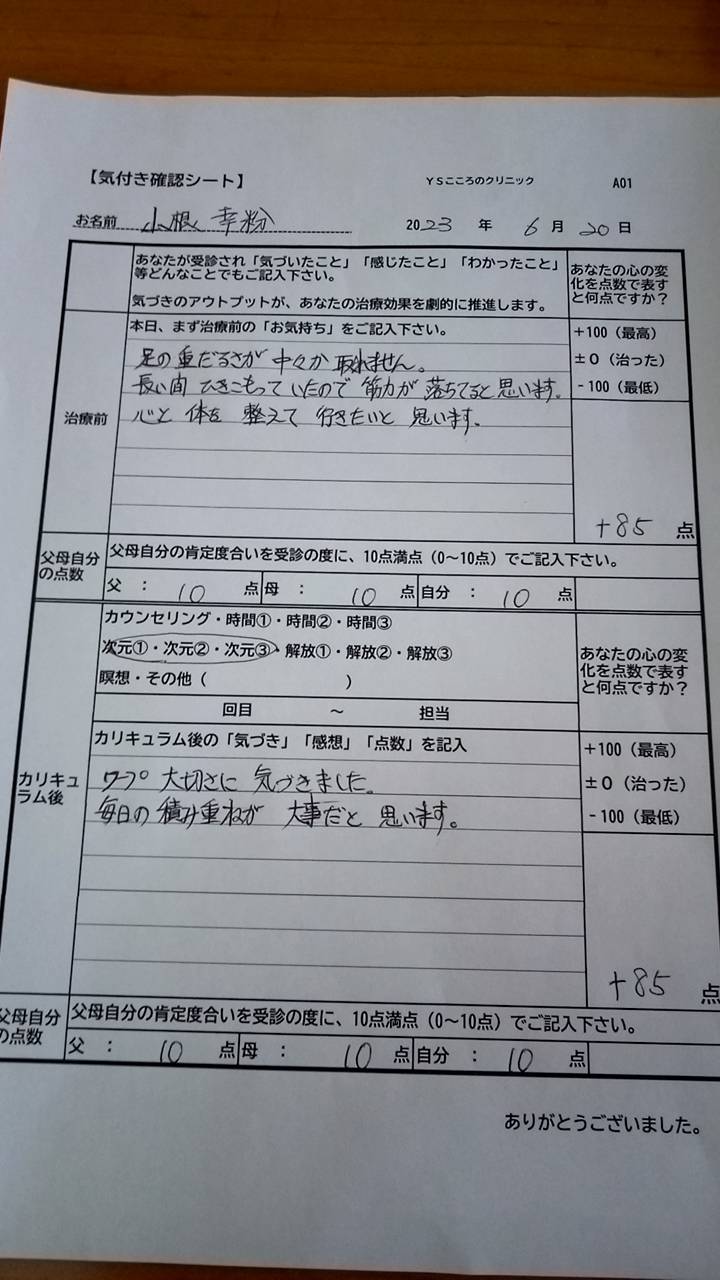 【気付き確認シート】 YSこころのクリニック A01
お名前 小根 幸粉 2023 年 6 月 20 日
あなたが受診され「気づいたこと」「感じたこと」「わかったこと」
等どんなことでもご記入下さい。
気づきのアウトプットが、あなたの治療効果を劇的に推進します。
あなたの心の変
化を点数で表す
と何点ですか?
治療前
本日、まず治療前の「お気持ち」をご記入下さい。
足の重だるさが 中々か取れません。
長い間 ひきこもっていたので 筋力が 落ちてると思います。
心と 体を 整えて 行きたいと 思います。
+100(最高)
±0(治った)
-100(最低)
+85 点
父母自分
の点数
父母自分の肯定度合いを受診の度に、10点満点(0~10点)でご記入下さい。
父 : 10 点 母 : 10 点 自分 : 10 点
カリキュ
ラム後
カウンセリング・時間①・時間②・時間③
次元①・次元②・次元③・解放①・解放②・解放③
瞑想・その他( )
回目 ~ 担当
あなたの心の変
化を点数で表す
と何点ですか?
カリキュラム後の「気づき」「感想」「点数」を記入
ワープ 大切さに 気づきました。
毎日の 積み重ねが 大事だと 思います。
+100(最高)
±0(治った)
-100(最低)
+85 点
父母自分
の点数
父母自分の肯定度合いを受診の度に、10点満点(0~10点)でご記入下さい。
父 : 10 点 母 : 10 点 自分 : 10 点
ありがとうございました。